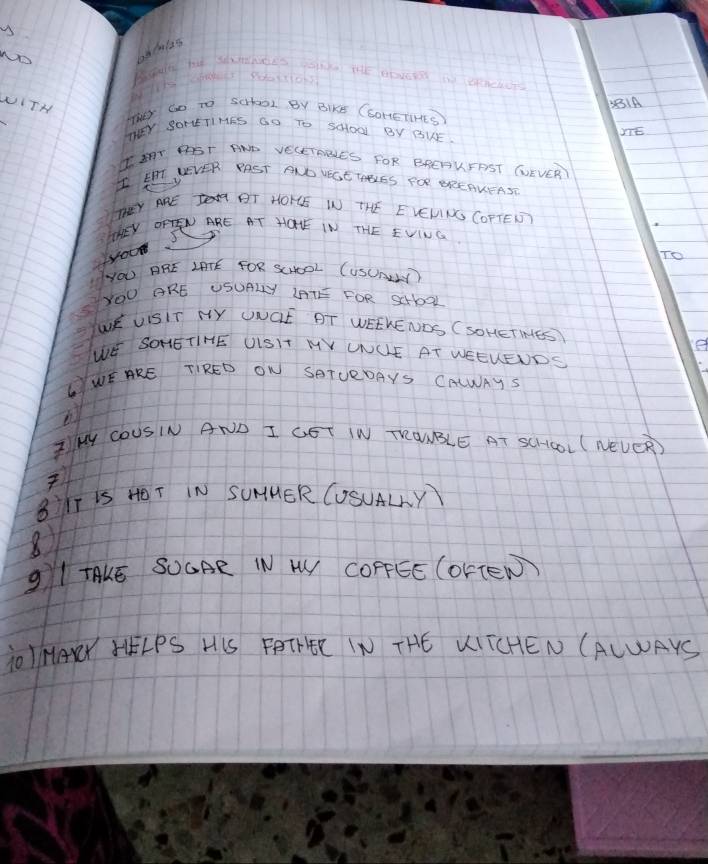 WITH
REWRITE THE SENTENCES USING THE ADVERB IN BRACKETS
IN ITS CORRECT POSITION.
THEY GO TO SCHOOL BY BIKE (SOMETIMES)
THEY SOMETIMES GO TO SCHOOL BY BIKE.
I EAT PAST AND VEGETABLES FOR BREAKFAST (NEVER)
I EAT NEVER PAST AND VEGETABLES FOR BREAKFAST
THEY ARE AT HOME IN THE EVENING (OFTEN)
THEY OFTEN ARE AT HOME IN THE EVING.
YOU ARE LATE FOR SCHOOL (USUALLY)
YOU ARE USUALLY LATE FOR SCHOOL
WE VISIT MY UNCLE AT WEEKENDS (SOMETIMES)
WE SOMETIME VISIT MY UNCLE AT WEEKENDS
6) WE ARE TIRED ON SATURDAYS (ALWAYS
6)
7) MY COUSIN AND I GET IN TROUMBLE AT SCHOOL (NEVER)
7)
8) IT IS HOT IN SUMMER (USUALLY)
8)
9) I TAKE SUGAR IN MY COFFEE (OFTEN)
10) MARK HELPS HIS FATHER IN THE KITCHEN (ALWAYS
TO